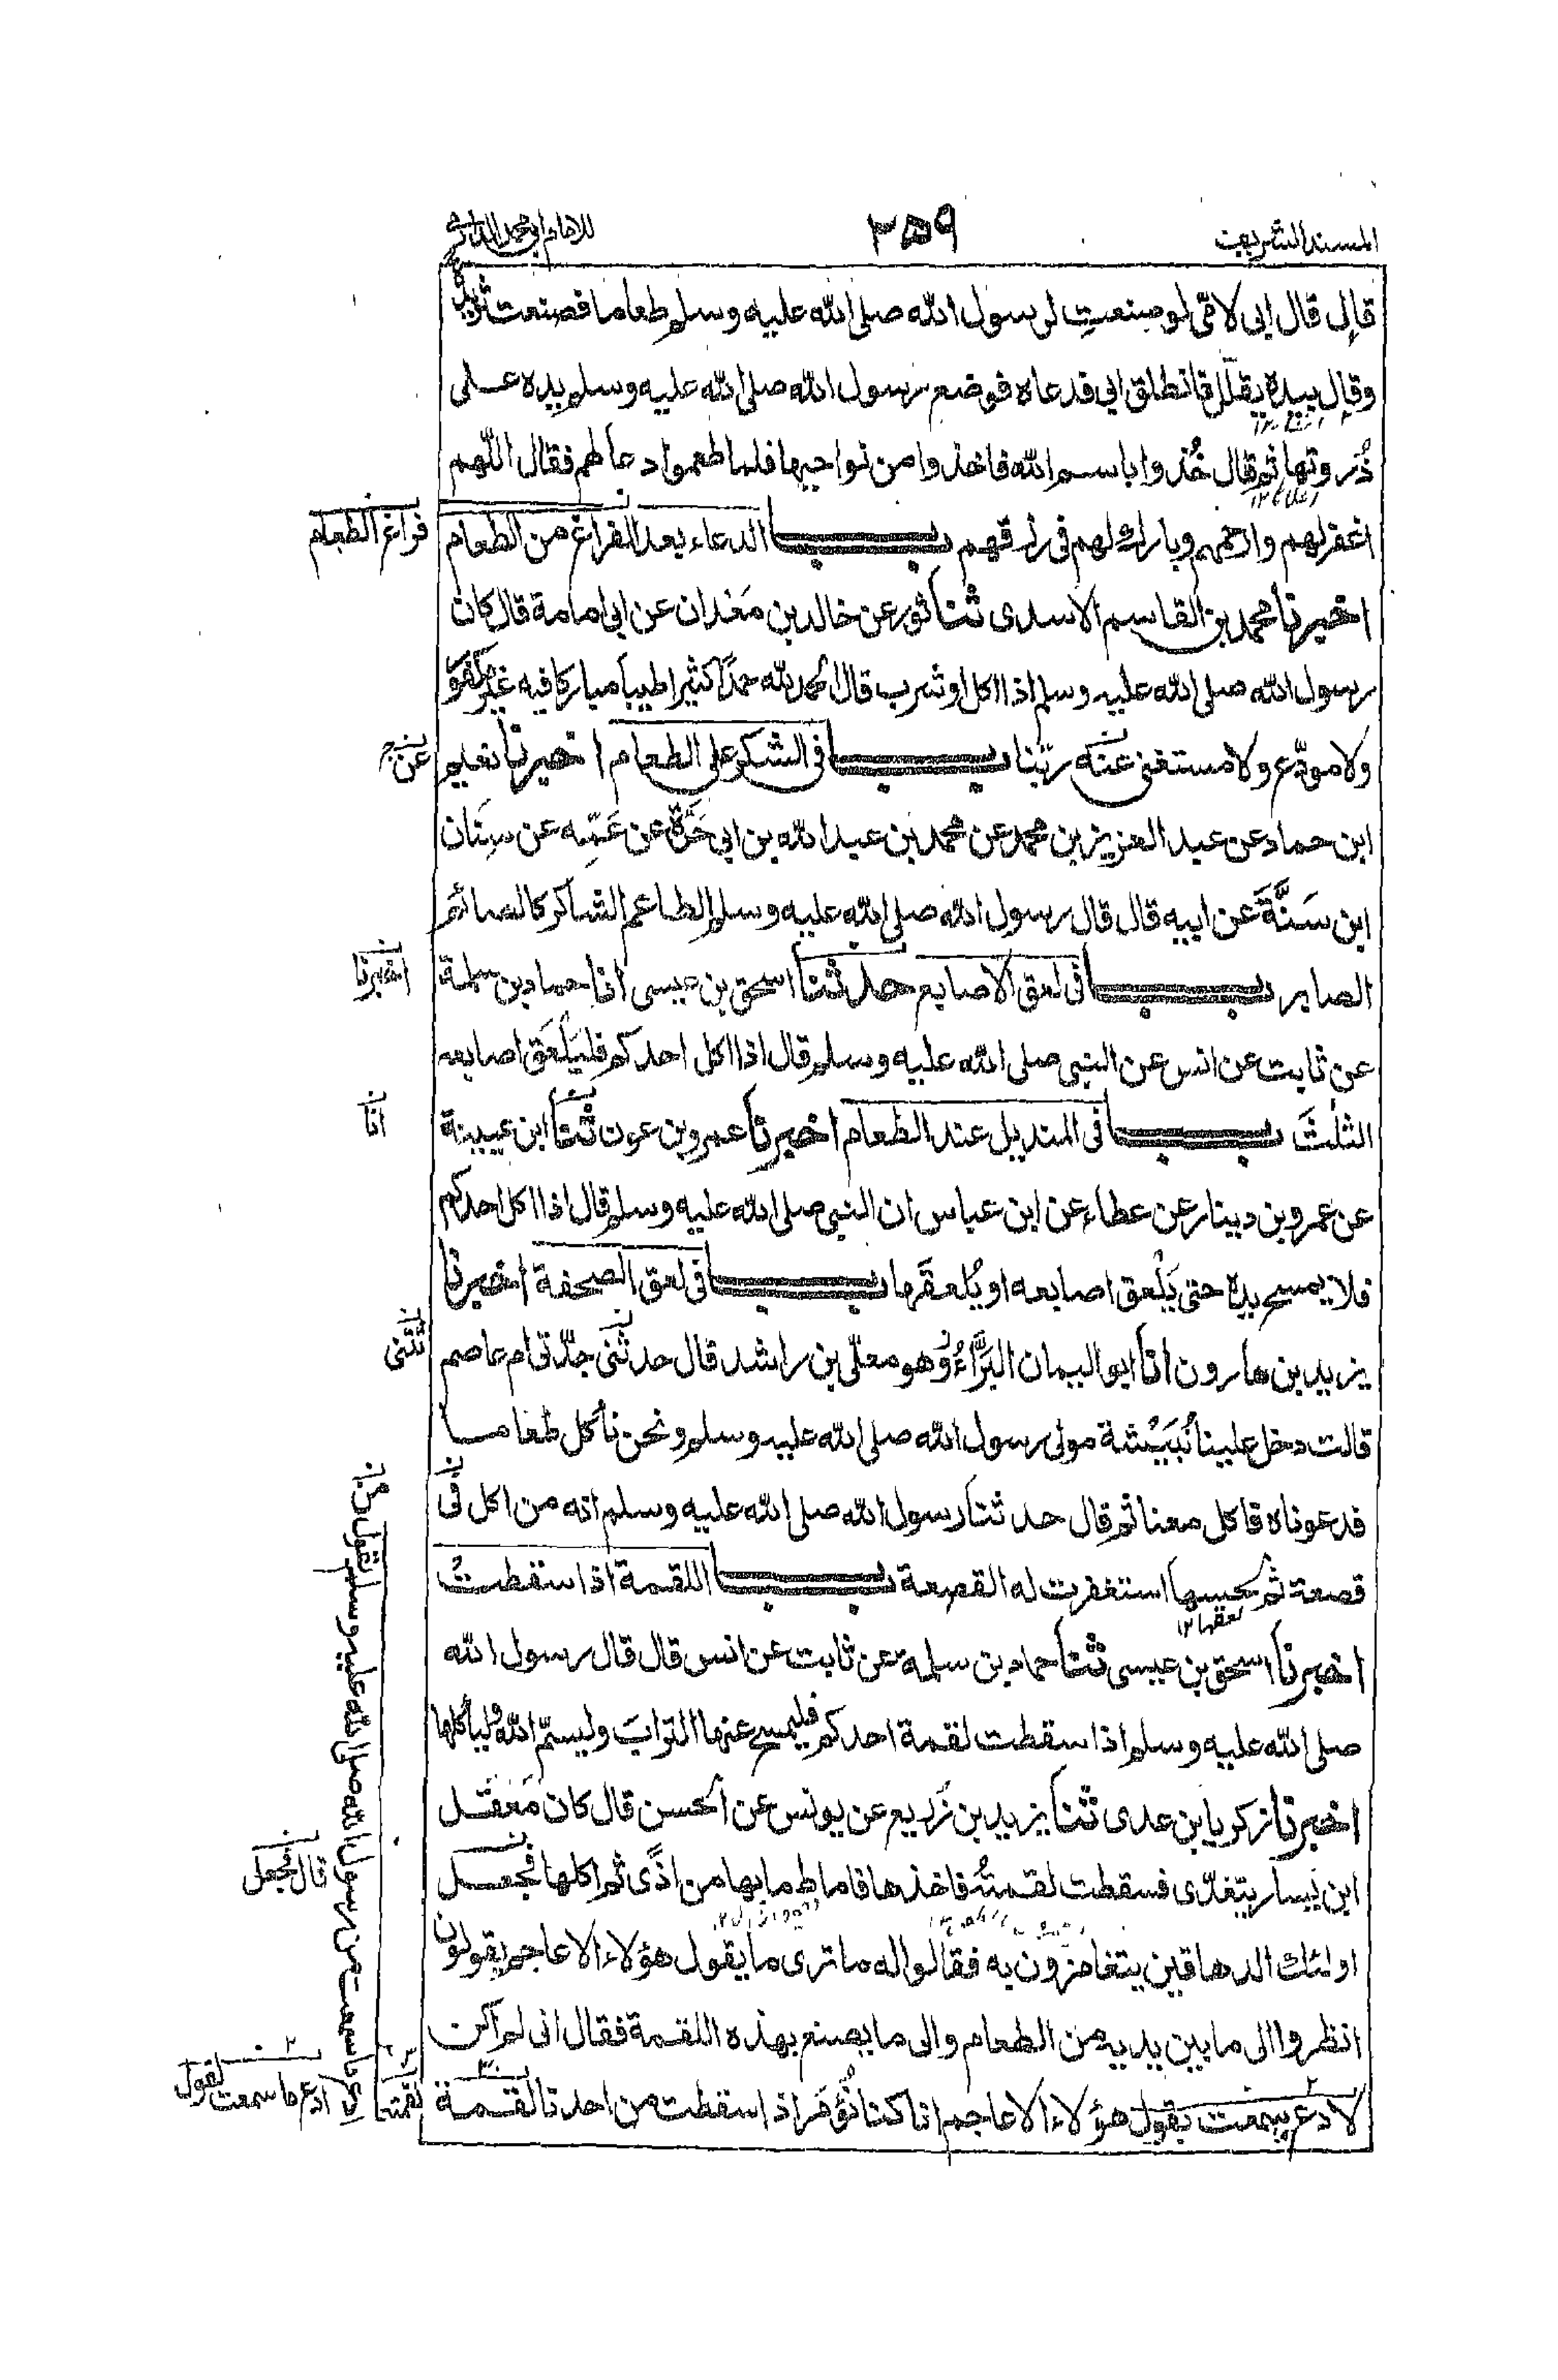 المسند الشريف
٢٥٩
للامام ابى محمد الدارمى
قال قال ابى لامّى لو صنعتِ لرسول الله صلى الله عليه وسلم طعاما فصنعت ثريدة
وقال بيده يقلّل فانطلق ابى فدعاه فوضع رسول الله صلى الله عليه وسلم يده على
ذُروتها ثم قال خُذوا باسم الله فاخذوا من نواحيها فلما طعموا دعا لهم فقال اللّٰهم
اغفر لهم وارحمهم وبارك لهم فى رزقهم باب الدعاء بعد الفراغ من الطعام
فراغ الطعام
اخبرنا محمد بن القاسم الاسدى ثنا ثور عن خالد بن مَعْدان عن ابى امامة قال كان
رسول الله صلى الله عليه وسلم اذا اكل او شرب قال الحمد لله حمدًا كثيرا طيبا مباركا فيه غير مكفوّ
ولا مودّع ولا مستغنى عنه ربّنا باب فى الشكر على الطعام اخبرنا نعيم
عن
ابن حماد عن عبد العزيز بن محمد عن محمد بن عبد الله بن ابى حُرّة عن عَمّه عن سِنَان
ابن سَنَّةَ عن ابيه قال قال رسول الله صلى الله عليه وسلم الطاعم الشاكر كالصائم
الصابر باب فى لعق الاصابع حدثنا اسحق بن عيسى انا حماد بن سلمة
اخبرنا
عن ثابت عن انس عن النبى صلى الله عليه وسلم قال اذا اكل احدكم فليَلْعَق اصابعه
الثلٰثَ باب فى المنديل عند الطعام اخبرنا عمرو بن عون ثنا ابن عيينة
انا
عن عمرو بن دينار عن عطاء عن ابن عباس ان النبى صلى الله عليه وسلم قال اذا اكل احدكم
فلا يمسح يده حتى يَلْعق اصابعه او يُلعقَها باب فى لعق الصحفة اخبرنا
يزيد بن هارون انا ابو اليمان البَرَّاءُ وهو معلّى بن راشد قال حدثنى جدّتى ام عاصم
ثتنى
قالت دخل علينا نُبَيْشة مولى رسول الله صلى الله عليه وسلم ونحن نأكل طعاما
فدعوناه فاكل معنا ثم قال حدثنا رسول الله صلى الله عليه وسلم انه من اكل فى
قصعة ثم لحسها استغفرت له القصعة باب اللقمة اذا سقطت
لعقها ١٢
اخبرنا اسحق بن عيسى ثنا حماد بن سلمة عن ثابت عن انس قال قال رسول الله
صلى الله عليه وسلم اذا سقطت لقمة احدكم فليمسح عنها الترابَ وليسمّ الله وليأكلها
اخبرنا زكريا بن عدى ثنا يزيد بن زُريع عن يونس عن الحسن قال كان مَعْقل
ابن يَسار يتغدّى فسقطت لقمتُه فاخذها فاماط ما بها من اذًى ثم اكلها فجعل
قال فجعل
اولئك الدهاقين يتغامزون به فقالوا له ما ترى ما يقول هؤلاء الاعاجم يقولون
انظروا الى ما بين يديه من الطعام والى ما يصنع بهذه اللقمة فقال انى لم اكن
لادع سمعت بقول هؤلاء الاعاجم انا كنا نُؤمَر اذا سقطت من احدنا لقمة
لقمته
لادع ما سمعت من رسول الله صلى الله عليه وسلم لقول
ادع ما سمعت لقول